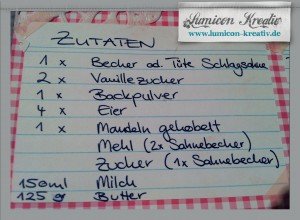 Lumicon Kreativ
www.lumicon-kreativ.de
ZUTATEN
1 x Becher od. Tüte Schlagsahne
2 x Vanillezucker
1 x Backpulver
4 x Eier
1 x Mandeln gehobelt
Mehl (2x Sahnebecher)
Zucker (1x Sahnebecher)
150ml Milch
125 g Butter